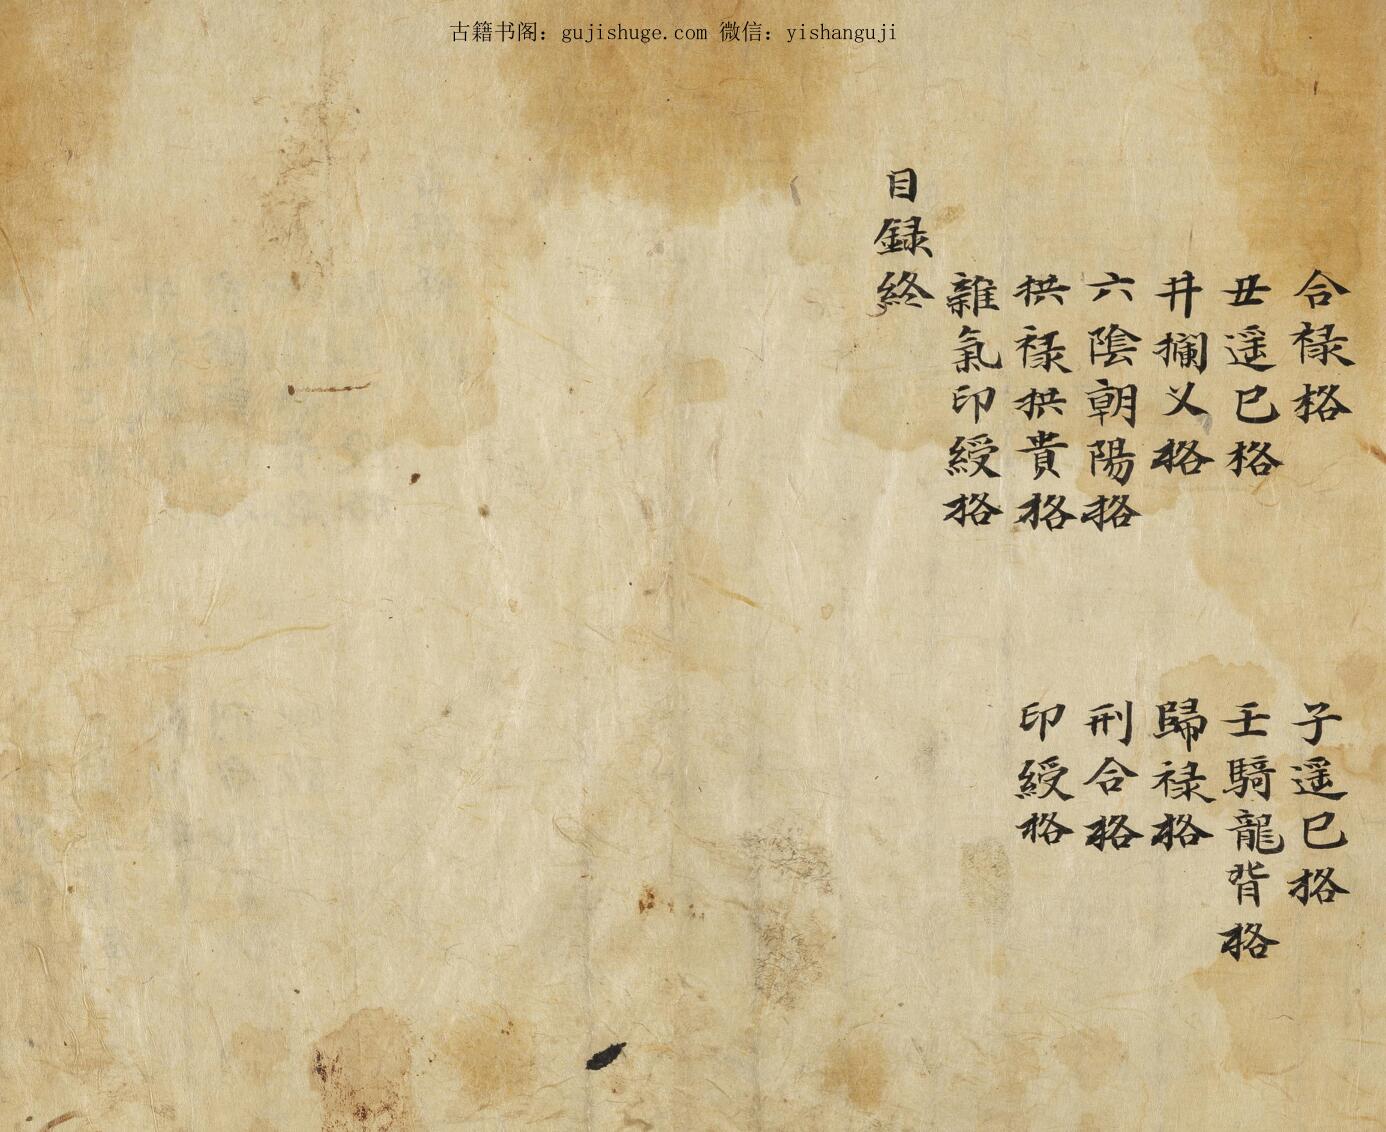 古籍书阁：gujishuge.com 微信：yishanguji
合禄格
子遥巳格
丑遥巳格
壬騎龍背格
井攔义格
歸禄格
六陰朝陽格
刑合格
拱禄拱貴格
印綬格
雜氣印綬格
目録終